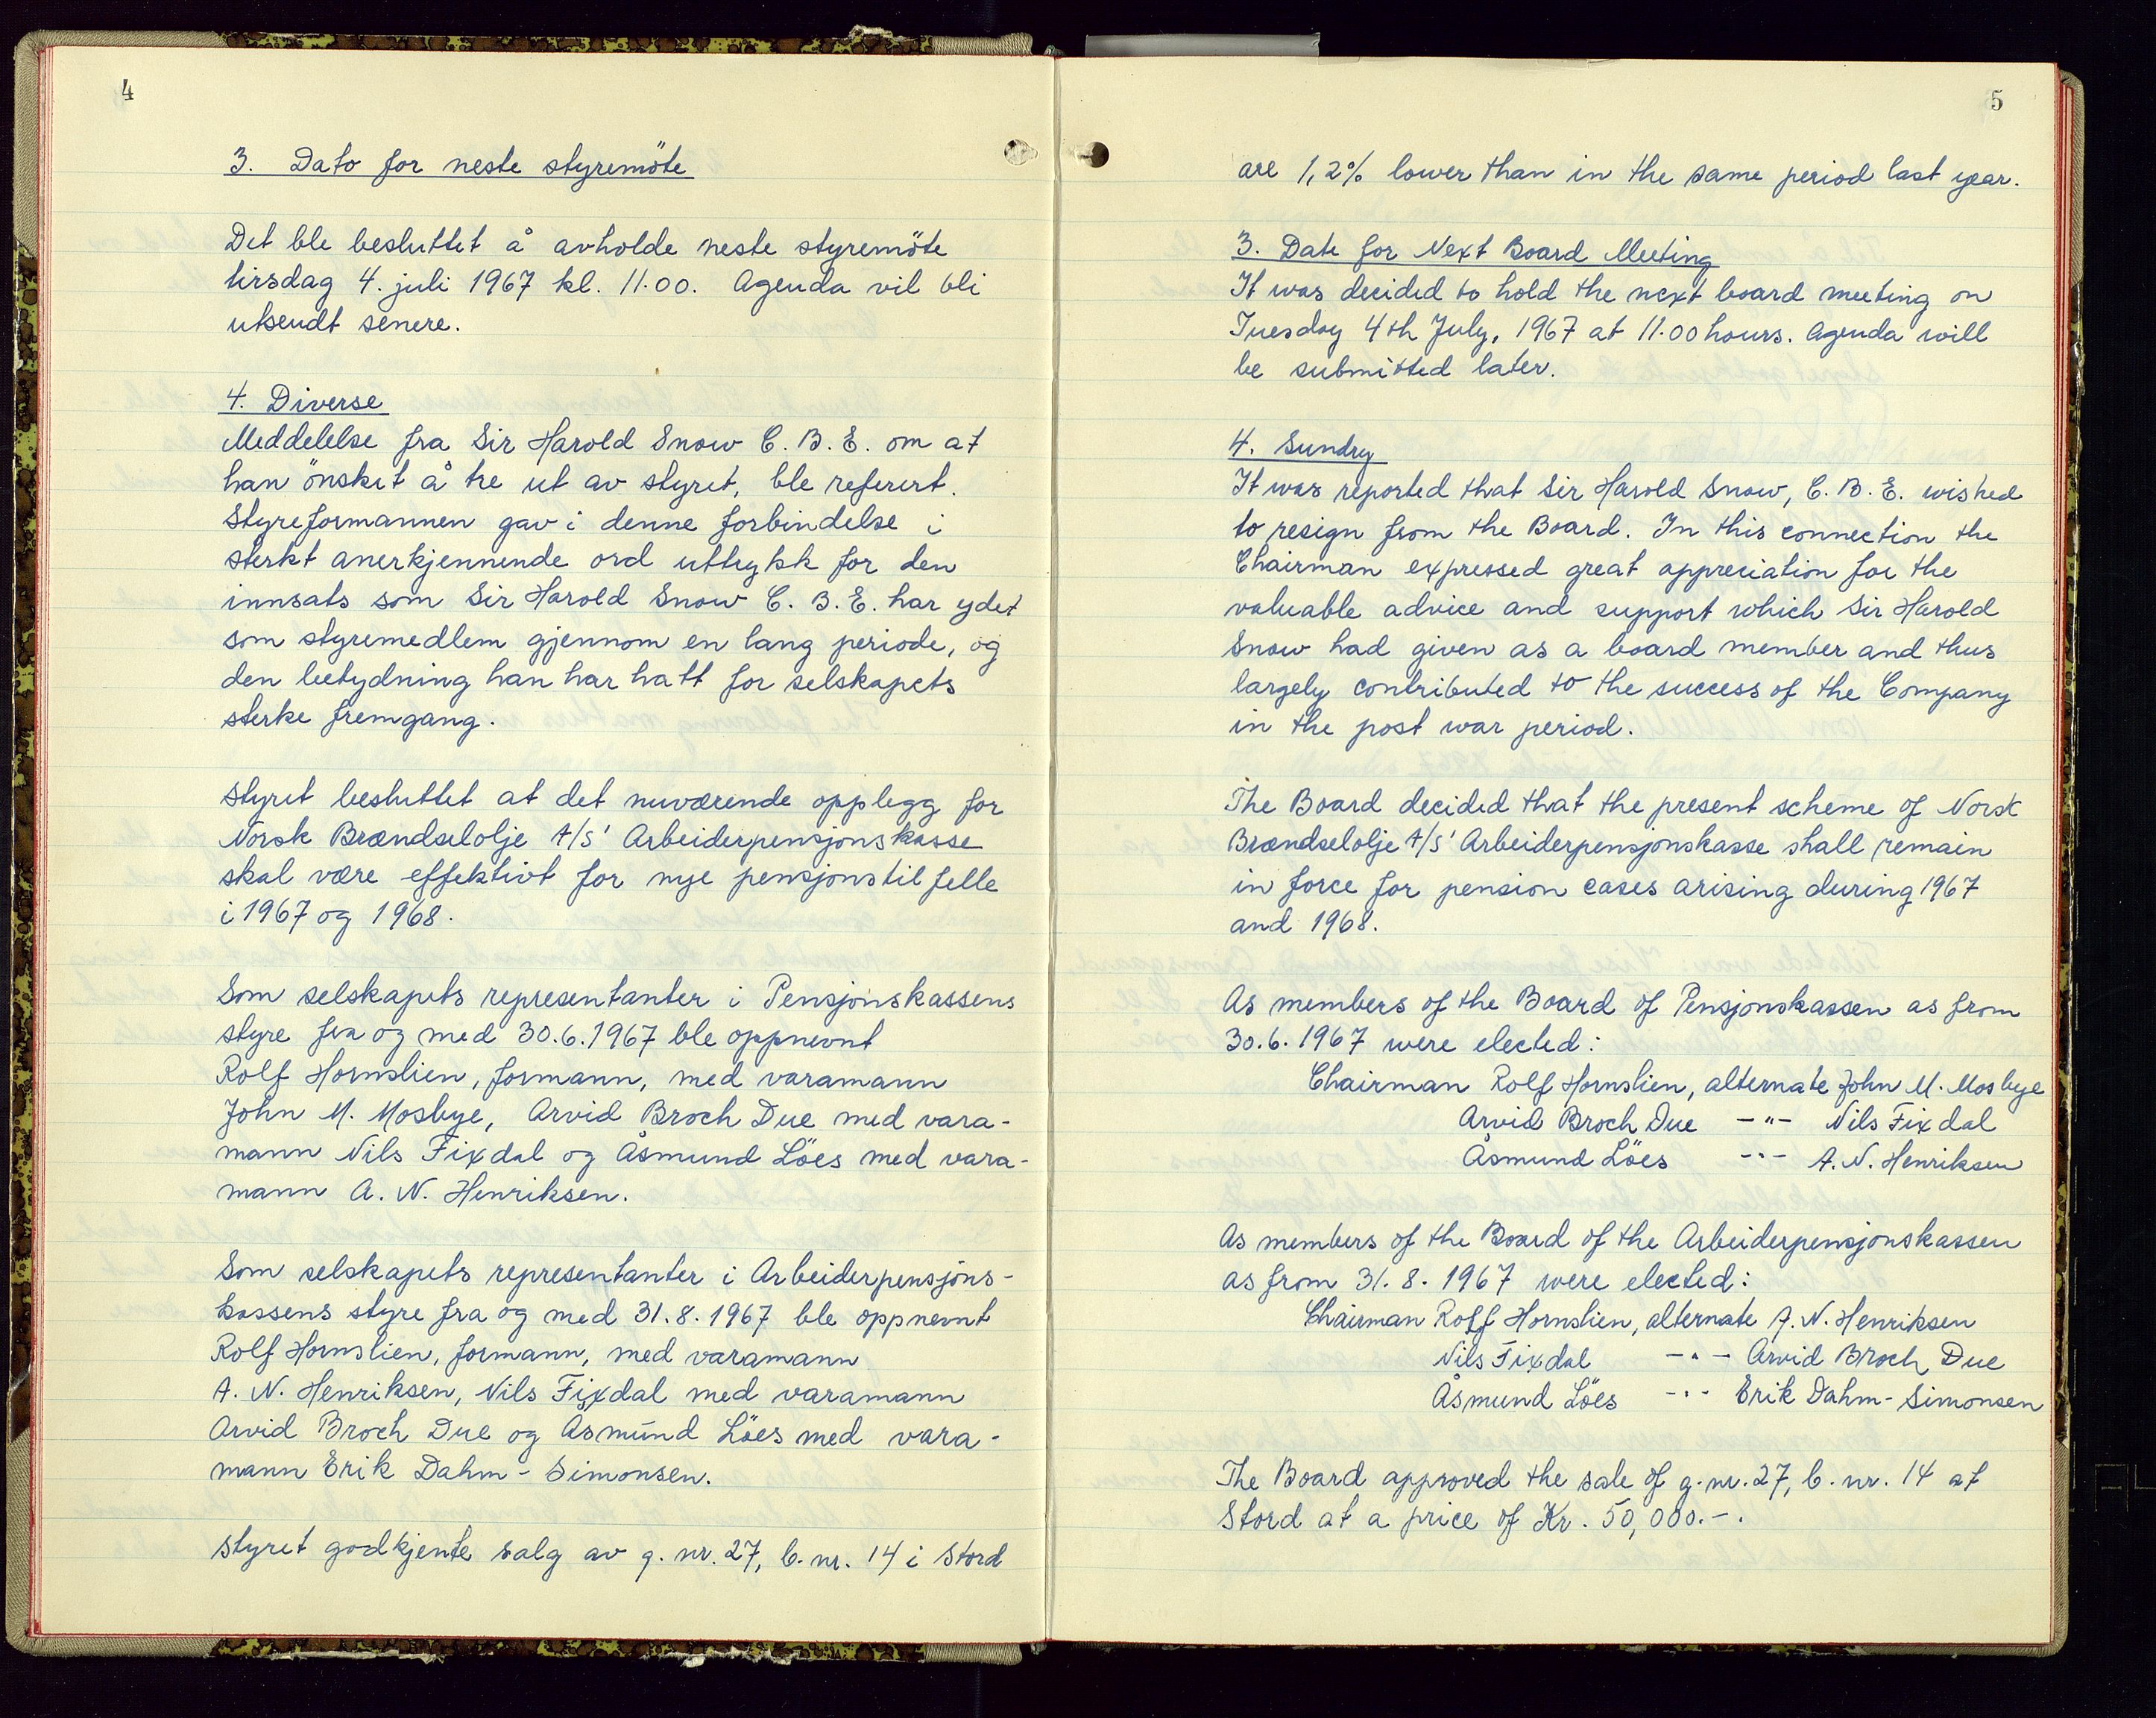 4
3. Dato for neste styremöte
Det ble besluttet å avholde neste styremöte
tirsdag 4. juli 1967 kl. 11.00. Agenda vil bli
utsendt senere.
4. Diverse
Meddelelse fra Sir Harold Snow C. B. E. om at
han önsket å tre ut av styret, ble referert.
Styreformannen gav i denne forbindelse i
sterkt anerkjennende ord uttrykk for den
innsats som Sir Harold Snow C. B. E. har ydet
som styremedlem gjennom en lang periode, og
den betydning han har hatt for selskapets
sterke fremgang.
Styret besluttet at det nuværende opplegg for
Norsk Brændselolje A/S' Arbeiderpensjonskasse
skal være effektivt for nye pensjonstilfelle
i 1967 og 1968.
Som selskapets representanter i Pensjonskassens
styre fra og med 30.6.1967 ble oppnevnt
Rolf Hornslien, formann, med varamann
John M. Mosbye, Arvid Broch Due med vara-
mann Nils Fixdal og Åsmund Löes med vara-
mann A. N. Henriksen.
Som selskapets representanter i Arbeiderpensjons-
kassens styre fra og med 31.8.1967 ble oppnevnt
Rolf Hornslien, formann, med varamann
A. N. Henriksen, Nils Fixdal med varamann
Arvid Broch Due og Åsmund Löes med vara-
mann Erik Dahm-Simonsen.
Styret godkjente salg av g. nr. 27, b. nr. 14 i Stord
5
are 1,2% lower than in the same period last year.
3. Date for Next Board Meeting
It was decided to hold the next board meeting on
Tuesday 4th July, 1967 at 11.00 hours. Agenda will
be submitted later.
4. Sundry
It was reported that Sir Harold Snow, C. B. E. wished
to resign from the Board. In this connection the
Chairman expressed great appreciation for the
valuable advice and support which Sir Harold
Snow had given as a board member and thus
largely contributed to the success of the Company
in the post war period.
The Board decided that the present scheme of Norsk
Brændselolje A/S' Arbeiderpensjonskasse shall remain
in force for pension cases arising during 1967
and 1968.
As members of the Board of Pensjonskassen as from
30.6.1967 were elected:
Chairman Rolf Hornslien, alternate John M. Mosbye
Arvid Broch Due -"- Nils Fixdal
Åsmund Löes -"- A. N. Henriksen
As members of the Board of the Arbeiderpensjonskassen
as from 31.8.1967 were elected:
Chairman Rolf Hornslien, alternate A. N. Henriksen
Nils Fixdal -"- Arvid Broch Due
Åsmund Löes -"- Erik Dahm-Simonsen
The Board approved the sale of g. nr. 27, b. nr. 14 at
Stord at a price of Kr. 50,000.-.